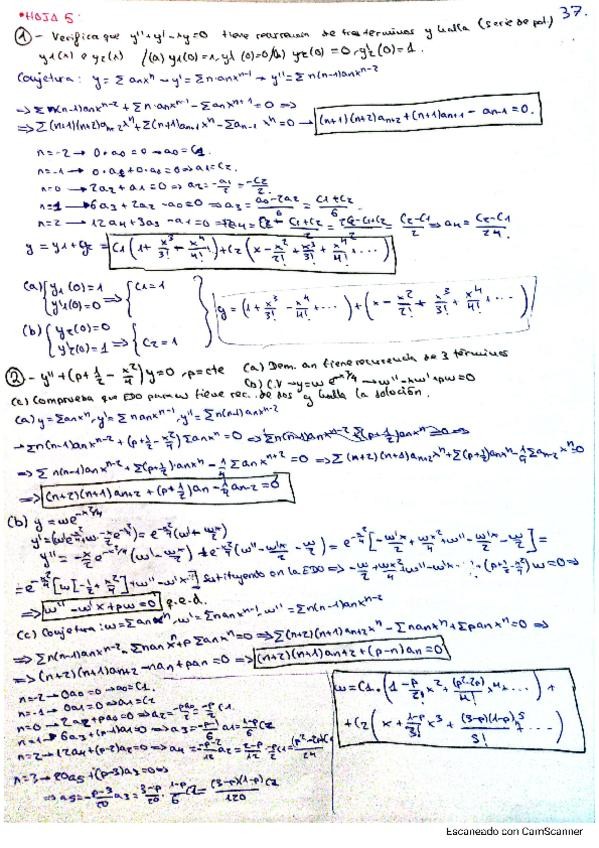 *HOJA 5:
37.
①- Verifica que y''+y'-xy=0 tiene recurrencia de tres términos y halla (serie de pot.)
y1(x) e y2(x) /(a) y1(0)=1, y1'(0)=0/(b) y2(0)=0, y2'(0)=1.
Conjetura: y=Σanxⁿ→y'=Σn·anxⁿ⁻¹→y''=Σn(n-1)anxⁿ⁻²
⇒Σn(n-1)anxⁿ⁻²+Σn·anxⁿ⁻¹-Σanxⁿ⁺¹=0 ⇒
⇒Σ(n+1)(n+2)an+2xⁿ+Σ(n+1)an+1xⁿ-Σan-1xⁿ=0 → (n+1)(n+2)an+2+(n+1)an+1-an-1=0.
n=-2→ 0·a0=0→a0=C1.
n=-1→ 0·a1+0·a0=0⇒a1=C2.
n=0→ 2a2+a1=0⇒a2=-a1/2=-C2/2.
n=1→6a3+2a2-a0=0⇒a3=(a0-2a2)/6=(C1+C2)/6
n=2→12a4+3a3-a1=0⇒12a4=C2-(C1+C2)/2=(2C2-C1-C2)/2=(C2-C1)/2⇒a4=(C2-C1)/24.
y=y1+y2=C1(1+x³/3!-x⁴/4!...)+C2(x-x²/2!+x³/3!+x⁴/4!+...)
(a){y1(0)=1 ⇒{C1=1
y1'(0)=0
y=(1+x³/3!-x⁴/4!+...)+(x-x²/2!+x³/3!+x⁴/4!+...)
(b){y2(0)=0
y2'(0)=1⇒{C2=1
②-y''+(p+1/2-x²/4)y=0, p=cte (a) Dem. an tiene recurrencia de 3 términos
(b) C.V→y=w e^-x²/4→w''-xw'+pw=0
(c) Comprueba que EDO para w tiene rec. de dos y halla la solución.
(a) y=Σanxⁿ, y'=Σnanxⁿ⁻¹, y''=Σn(n-1)anxⁿ⁻²
→Σn(n-1)anxⁿ⁻²+(p+1/2-x²/4)Σanxⁿ=0
⇒Σn(n-1)anxⁿ⁻²+Σ(p+1/2)anxⁿ-1/4Σanxⁿ⁺²=0 ⇒Σ(n+2)(n+1)an+2xⁿ+Σ(p+1/2)anxⁿ-1/4Σan-2xⁿ=0
⇒(n+2)(n+1)an+2+(p+1/2)an-1/4an-2=0
(b) y=we^-x²/4
y''=-x/2e^-x²/4(w'-wx/2)+e^-x²/4(w''-w'x/2-w/2)=e^-x²/4[-w'x/2+wx²/4+w''-w'x/2-w/2]=
=e^-x²/4[w[-1/2+x²/4]+w''-w'x] Sustituyendo en la EDO⇒-w/2+wx²/4+w''-w'x+(p+1/2-x²/4)w=0⇒
⇒w''-w'x+pw=0 q.e.d.
(c) Conjetura: w=Σanxⁿ, w'=Σnanxⁿ⁻¹, w''=Σn(n-1)anxⁿ⁻²
⇒Σn(n-1)anxⁿ⁻²-Σnanxⁿ+pΣanxⁿ=0⇒Σ(n+2)(n+1)an+2xⁿ-Σnanxⁿ+Σpanxⁿ=0 ⇒
⇒(n+2)(n+1)an+2-nan+pan=0⇒(n+2)(n+1)an+2+(p-n)an=0
n=-2→0a0=0→a0=C1.
n=-1→0a1=0→a1=C2
n=0→2a2+pa0=0→a2=-pa0/2=-p/2C1
n=1→6a3+(p-1)a1=0⇒a3=-(p-1)/6a1=(1-p)/6C2
n=2→12a4+(p-2)a2=0⇒a4=-(p-2)/12a2=(2-p)/12·-p/2C1=(p²-2p)C1/24
n=3→20a5+(p-3)a3=0⇒
⇒a5=-(p-3)/20a3=(3-p)/20·(1-p)/6C2=(3-p)(1-p)C2/120
w=C1·(1-p/2!x²+(p²-2p)/4!x⁴+...)+
+C2(x+(1-p)/3!x³+(3-p)(1-p)/5!x⁵+...)
Escaneado con CamScanner